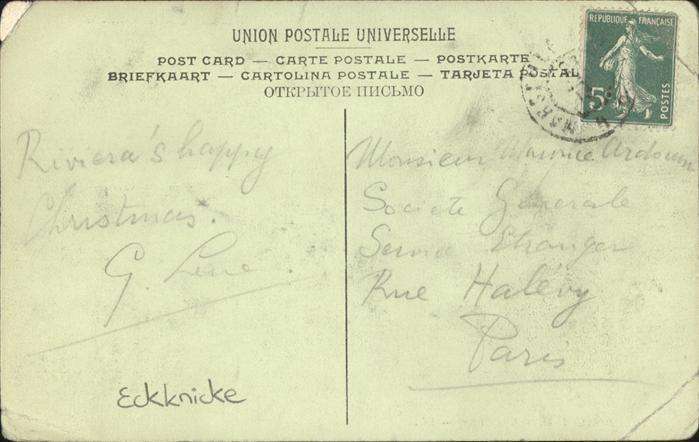 UNION POSTALE UNIVERSELLE
POST CARD — CARTE POSTALE — POSTKARTE
BRIEFKAART — CARTOLINA POSTALE — TARJETA POSTAL
ОТКРЫТОЕ ПИСЬМО
REPUBLIQUE FRANÇAISE
5
POSTES
Riviera's happy
Christmas.
G.
Eckknicke
Monsieur Maurice
Societe Generale
Service Etranger
Rue Halévy
Paris